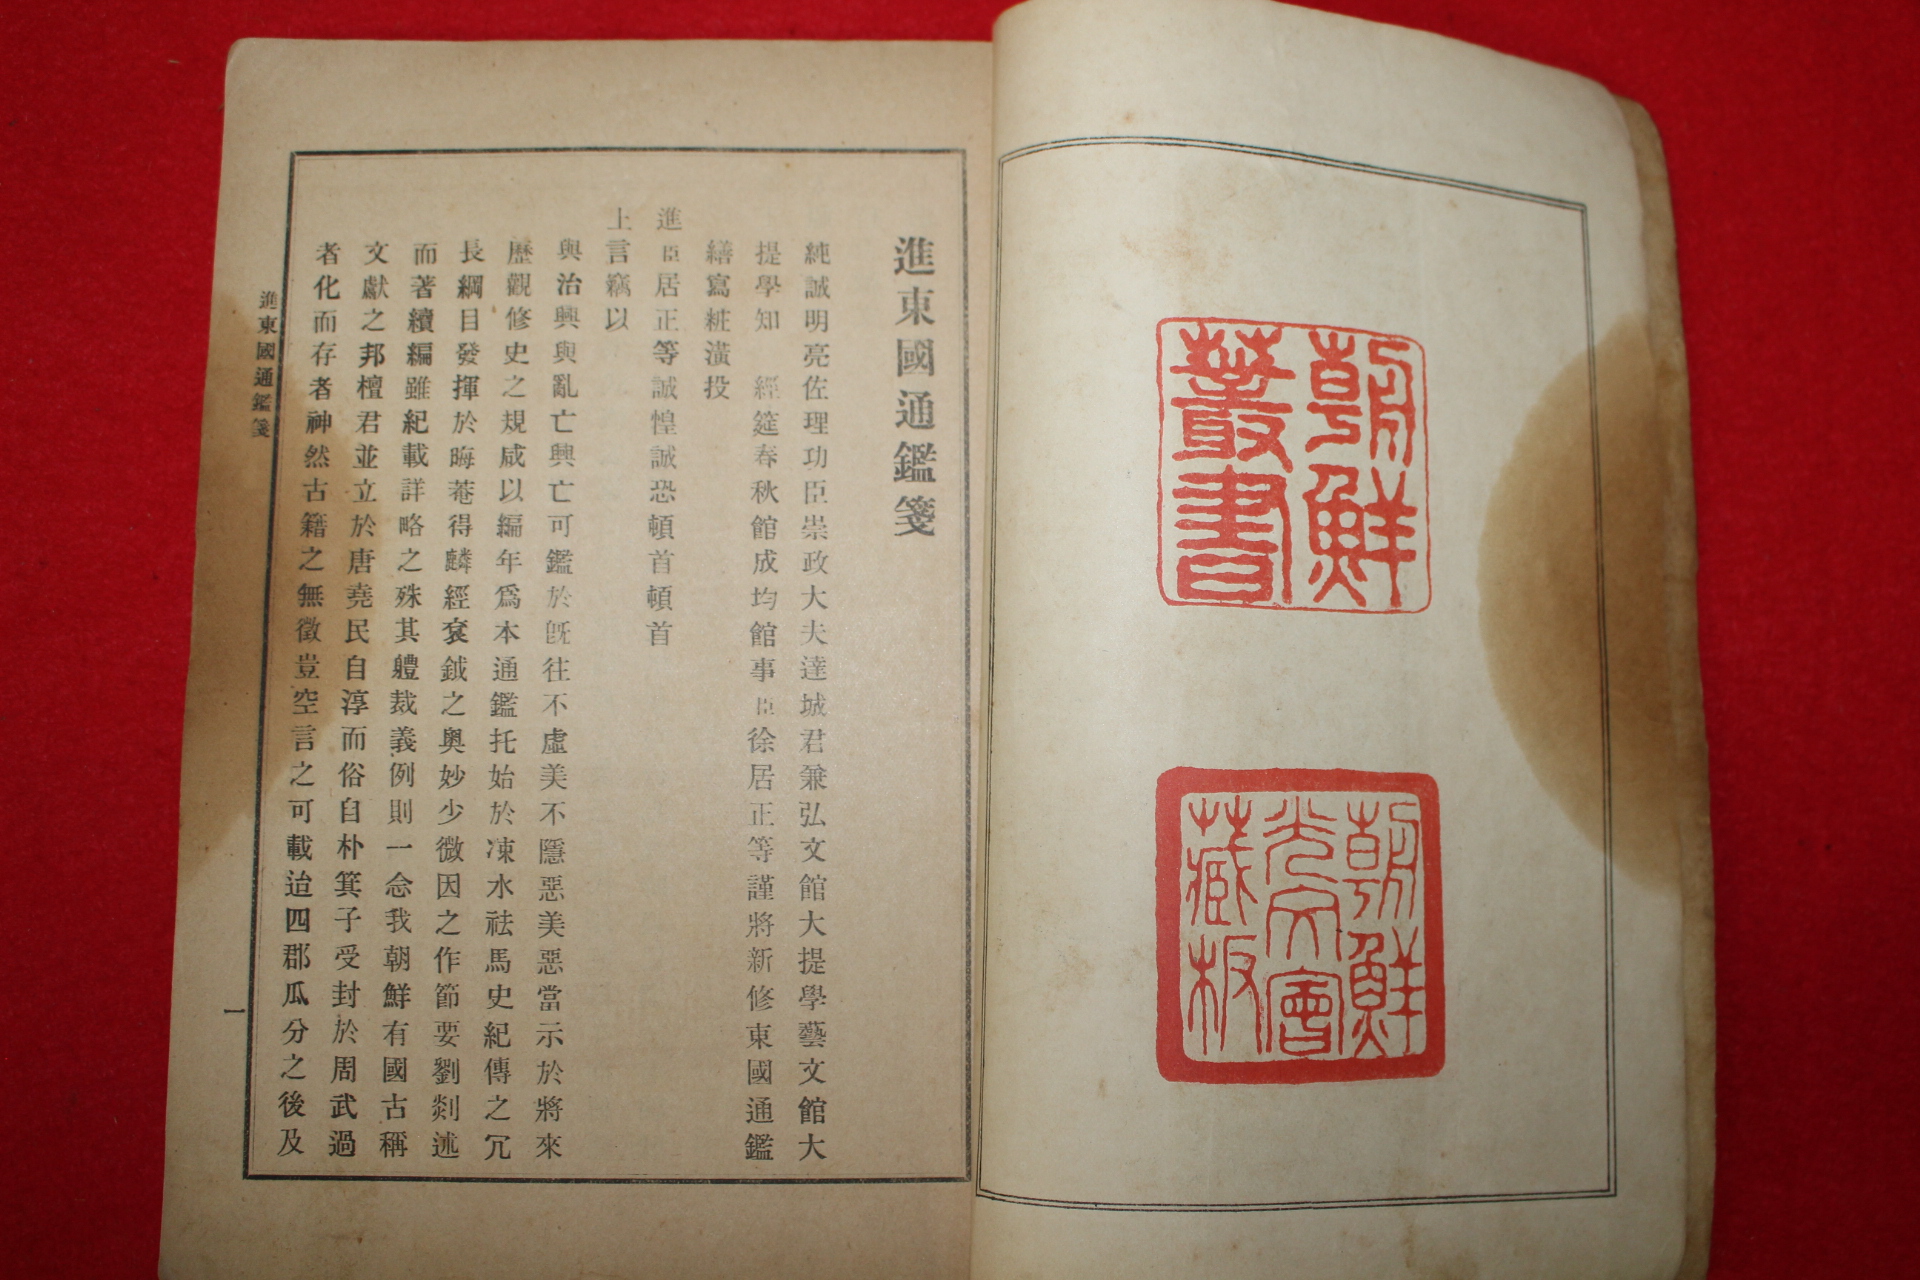 朝鮮
叢書
朝鮮
光文會
藏板
進東國通鑑箋
純誠明亮佐理功臣崇政大夫達城君兼弘文館大提學藝文館大
提學知 經筵春秋館成均館事臣徐居正等謹將新修東國通鑑
繕寫粧潢投
進臣居正等誠惶誠恐頓首頓首
上言竊以
與治興與亂亡興亡可鑑於旣往不虛美不隱惡美惡當示於將來
歷觀修史之規咸以編年爲本通鑑托始於凍水祛馬史紀傳之冗
長綱目發揮於晦菴得麟經袞鉞之奧妙少微因之作節要劉剡述
而著續編雖紀載詳略之殊其軆裁義例則一念我朝鮮有國古稱
文獻之邦檀君並立於唐堯民自淳而俗自朴箕子受封於周武過
者化而存者神然古籍之無徵豈空言之可載迨四郡瓜分之後及
進東國通鑑箋
一